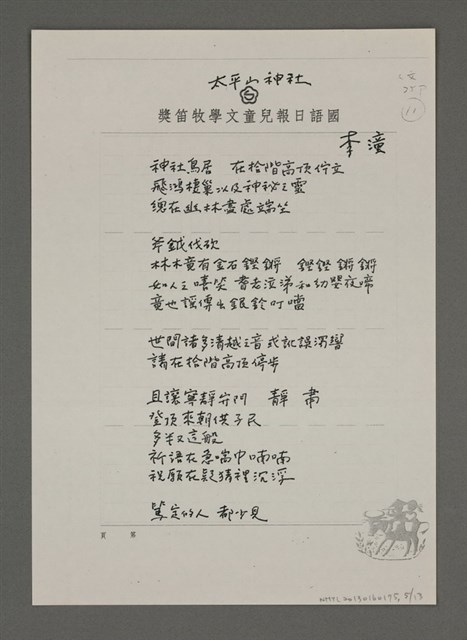 太平山神社
獎笛牧學文童兒報日語國
李潼
神社鳥居　在拾階高頂佇立
飛鴻棲巢以及神祕之靈
總在幽林盡處端坐
斧鉞伐砍
林木竟有金石鏗鏘　鏗鏗鏘鏘
如人之嘻笑 耆老泣涕和幼嬰夜啼
竟也謠傳出銀鈴叮噹
世間諸多清越之音或訛誤濁響
請在拾階高頂停步
且讓寧靜守門　靜 肅
登頂來朝供子民
多半又這般
祈語在急喘中喃喃
祝願在疑猜裡沉浮
篤定的人 都少見
頁 第
11